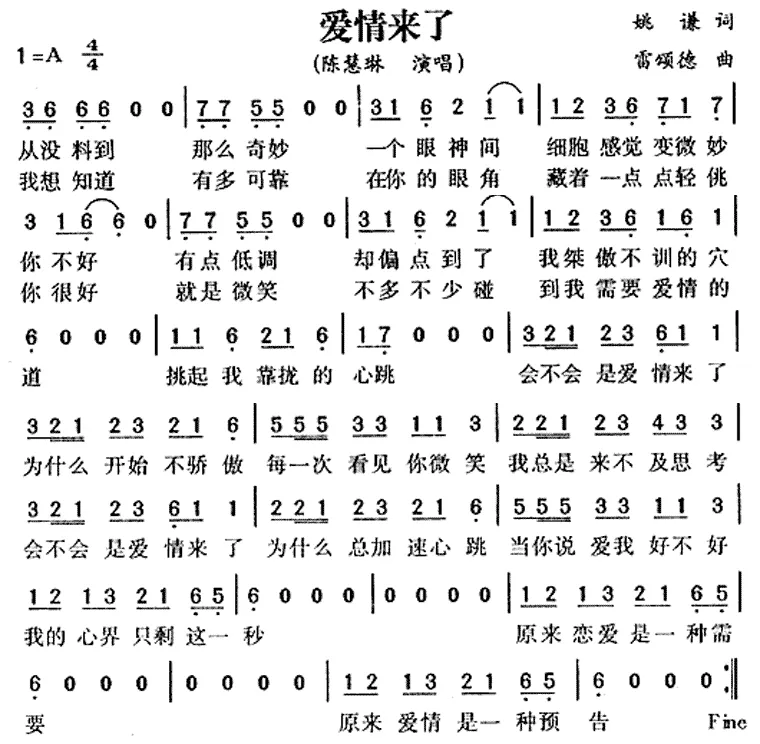 爱情来了
姚 谦 词
1=A 4/4
(陈慧琳 演唱)
雷颂德 曲
3 6 6 6 0 0 | 7 7 5 5 0 0 | 3 1 6 2 1 1 | 1 2 3 6 7 1 7 |
从没 料到 那么 奇妙 一个 眼 神 间 细胞 感觉 变微 妙
我想 知道 有多 可靠 在你 的 眼 角 藏着 一点 点轻 佻
3 1 6 6 0 | 7 7 5 5 0 0 | 3 1 6 2 1 1 | 1 2 3 6 1 6 1 |
你 不好 有点 低调 却偏 点 到 了 我桀 傲不 训的 穴
你 很好 就是 微笑 不多 不 少 碰 到我 需要 爱情 的
6 0 0 0 | 1 1 6 2 1 6 | 1 7 0 0 0 | 3 2 1 2 3 6 1 1 |
道 挑起 我 靠拢 的 心跳 会不会 是爱 情来 了
3 2 1 2 3 2 1 6 | 5 5 5 3 3 1 1 3 | 2 2 1 2 3 4 3 3 |
为什么 开始 不骄 傲 每一次 看见 你微 笑 我总是 来不 及思 考
3 2 1 2 3 6 1 1 | 2 2 1 2 3 2 1 6 | 5 5 5 3 3 1 1 3 |
会不会 是爱 情来 了 为什么 总加 速心 跳 当你说 爱我 好不 好
1 2 1 3 2 1 6 5 | 6 0 0 0 | 0 0 0 0 | 1 2 1 3 2 1 6 5 |
我的 心界 只剩 这一 秒 原来 恋爱 是一 种需
6 0 0 0 | 0 0 0 0 | 1 2 1 3 2 1 6 5 | 6 0 0 0 :||
要 原来 爱情 是一 种预 告 Fine